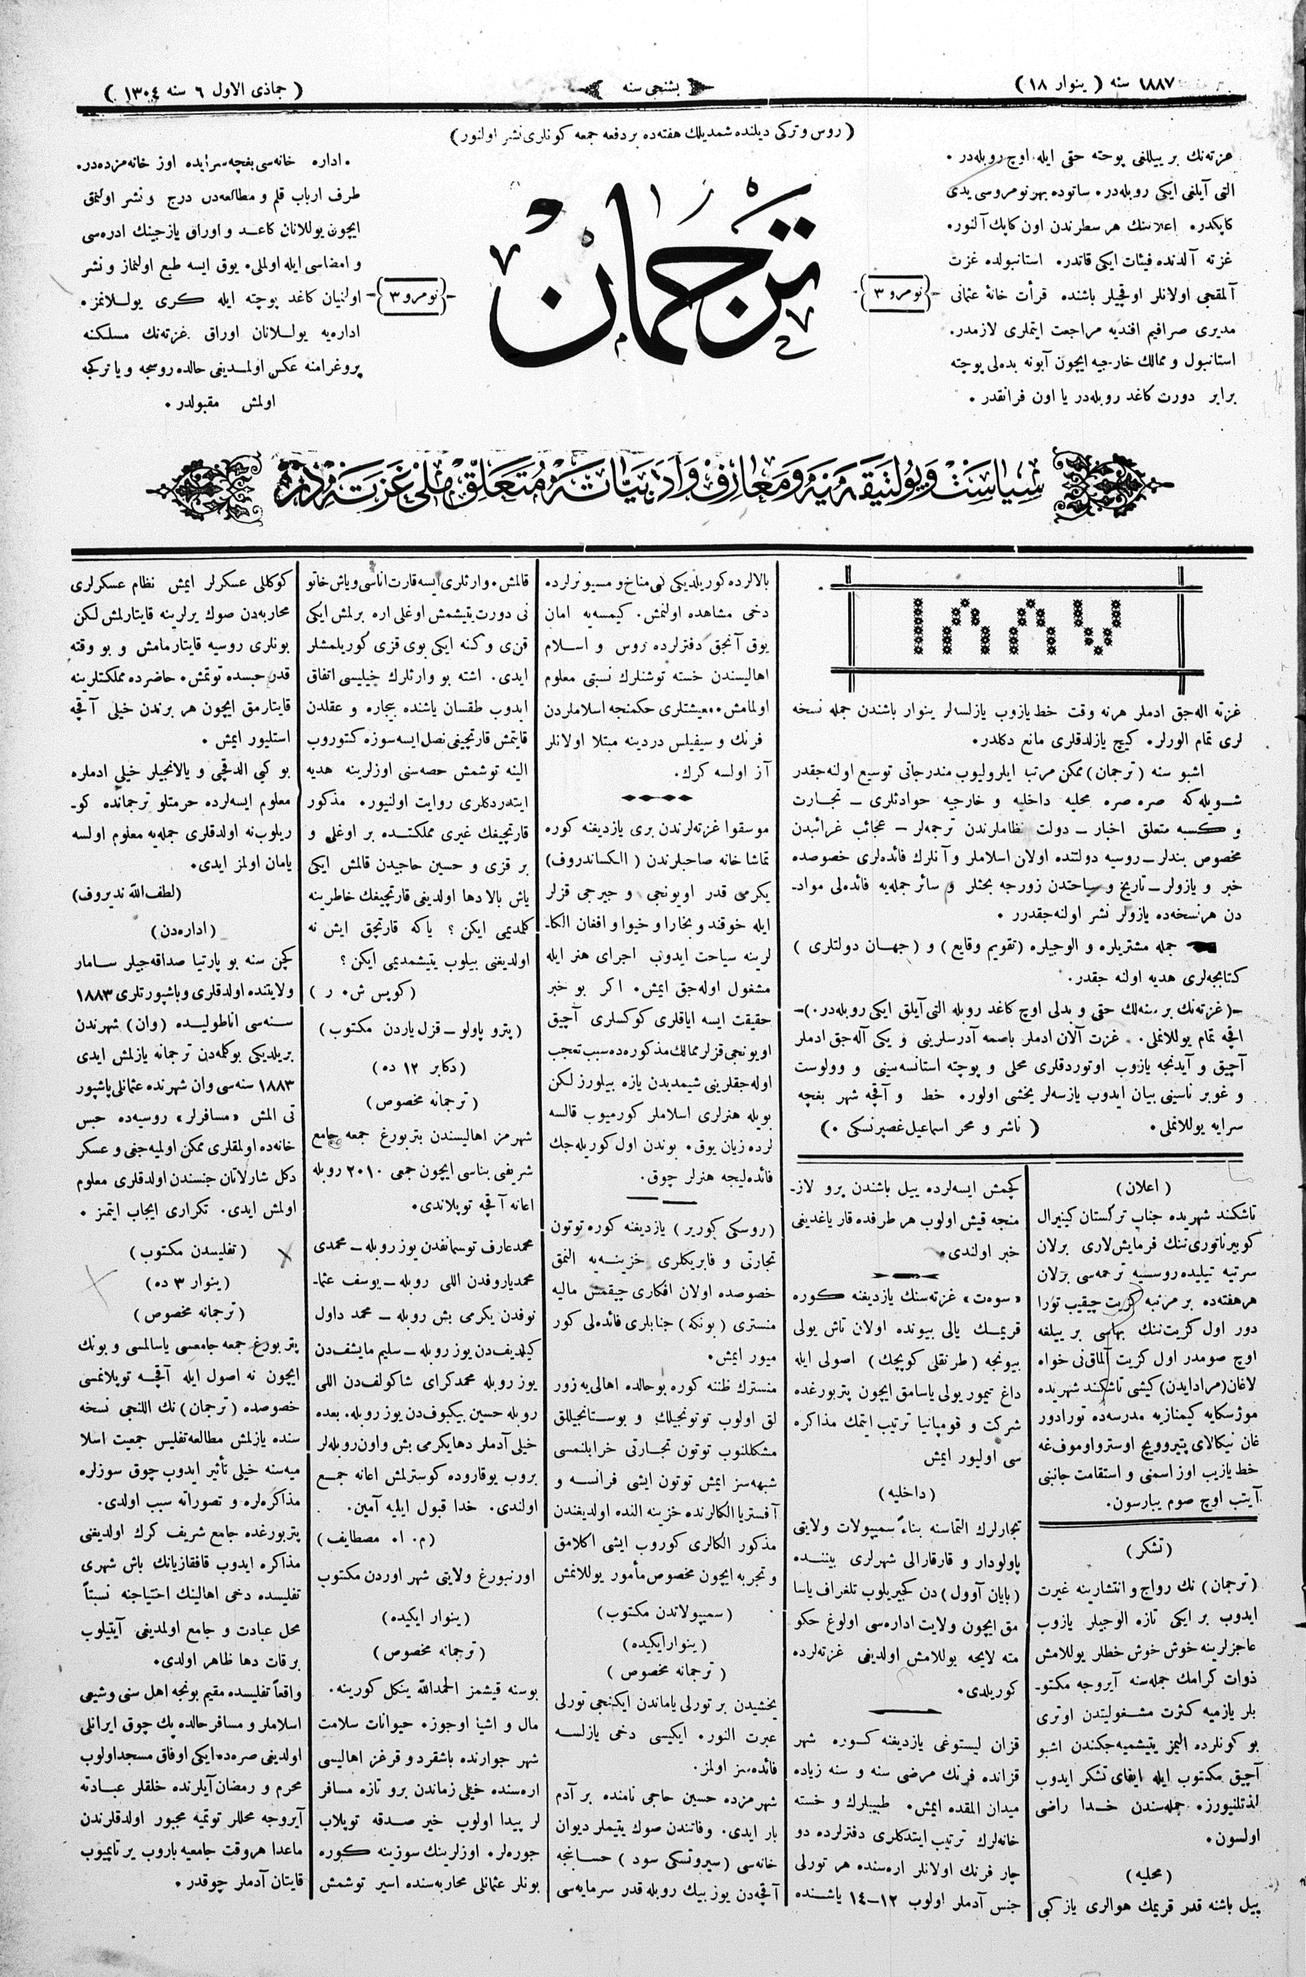 ١٨٨٧ سنه ( ینوار ١٨ )
بشنجی سنه
( جماذی الاول ٦ سنه ١٣٠٤ )
( روس و ترکی دیلنده شمدیلك هفته‌ده بر دفعه جمعه کونلری نشر اولنور )
هزته‌نك بر ییللغی پوچته حقی ایله اوچ روبله‌در .
التی آیلغی ایکی روبله‌در. ساتوده بهر نومروسی یدی
کاپکدر. اعلانینك هر سطرندن اون کاپك آلنور.
غزته آلدنده فیئات ایکی قاتدر. استانبولده غزت
آلمقجی اولانلر اوقچیلر باشنده قرأت خانهٔ عثمانی
مدیری صرافیم افندیه مراجعت ایتملری لازمدر.
استانبول و ممالك خارجیه ایچون آبونه بدلی پوچته
برابر دورت کاغد روبله‌در یا اون فرانقدر.
نومرو ٣
ترجمان
نومرو ٣
اداره خانه‌سی بغچه سرایده اوز خانه مزده‌در.
طرف ارباب قلم و مطالعه‌دن درج و نشر اولنمق
ایچون یوللانان کاغد و اوراق یازجینك ادره‌سی
و امضاسی ایله اولملی. یوق ایسه طبع اولنماز و نشر
اولنمیان کاغد پوچته ایله کری یوللانمز.
اداره‌یه یوللانان اوراق غزته‌نك مسلکنه
پروغرامنه عکس اولمدیغی حالده روسجه و یا ترکجه
اولمش مقبولدر.
سیاست و پولتیقه‌یه و معارف و ادبیاته متعلق ملی غزته‌در
١٨٨٧
غزته اله‌جق ادملر هر نه وقت خط یازوب یازلسه‌لر ینوار باشندن جمله نسخه
لری تمام الورلر. کیچ یازلدقلری مانع دکلدر.
اشبو سنه (ترجمان) ممکن مرتبه ایلرولیوب مندرجاتی توسیع اولنه‌جقدر
شویله‌که صره صره محلیه داخلیه و خارجیه حوادثلری ــ تجارت
و کسبه متعلق اخبار ــ دولت نظاملرندن ترجمه‌لر ــ عجائب غرائبدن
مخصوص بندلر ــ روسیه دولتنده اولان اسلاملر و آنلرك فائده‌لری خصوصده
خبر و یازولر ــ تاریخ و سیاحتدن زورجه بحثلر و سائر جمله‌یه فائده‌لی مواد‌ـ
دن هر نسخه‌ده یازولر نشر اولنه‌جقدرر .
جمله مشتریلره و الوجیلره (تقویم وقایع) و (جهان دولتلری)
کتابجه‌لری هدیه اولنه جقدر.
-(غزته‌نك بر سنه‌لك حقی و بدلی اوچ کاغد روبله التی آیلق ایکی روبله‌در.)-
اقچه تمام یوللانملی. غزت آلان ادملر باصمه آدرسلرینی و یکی آله‌جق ادملر
آچیق و آیدنجه یازوب اوتوردقلری محلی و پوچته استانسه‌سینی و وولوست
و غوبرناسینی بیان ایدوب یازسه‌لر یخشی اولور. خط و آقچه شهر بغچه
سرایه یوللانملی. ( ناشر و محر اسماعیل غصپرنسکی . )
( اعلان )
تاشکند شهریده جناب ترکستان کینرال
کوبیرناتوری‌ننك فرمایش‌لاری برلان
سرتیه تیلیده روسسیه ترجمه‌سی برلان
هر هفته‌ده بر مرتبه کزیت چیقیب تورا
دور اول کزیت‌ننك بهاسی بر ییلغه
اوچ صومدر اول کزیت آلماق‌نی خواه
لاغان (مرادایدن) کیشی تاشکند شهریده
موژسکایه کیمنازیه مدرسه‌ده تورادور
غان نیکالای پتیروویچ اوسترواوموف‌غه
خط یازیب اوز اسمنی و استقامت جانبی
آیتب اوچ صوم یبارسون.
( تشکر )
(ترجمان) نك رواج و انتشارینه غیرت
ایدوب بر ایکی تازه الوجیلر یازوب
عاجزلرینه خوش خوش خطلر یوللامش
ذوات کرامك جمله‌سنه آیروجه مکتو‌ـ
بلر یازمیه کثرت مشغولیتدن اوتری
بو کونلرده الیمز یتیشمیه‌جکندن اشبو
آچیق مکتوب ایله ایفای تشکر ایدوب
لذتلنیورز. جمله‌سندن خدا راضی
اولسون.
( محلیه )
ییل باشنه قدر قریمك هوالری یاز کبی
کچمش ایسه‌لرده ییل باشندن برو لاز‌ـ
منجه قیش اولوب هر طرفده قار یاغدیغی
خبر اولندی.
«سوه‌ت» غزته‌سنك یازدیغنه کوره
قریمك یالی بیونده اولان تاش یولی
بیونجه (طرنقلی کوپچك) اصولی ایله
داغ تیمور یولی یاسامق ایچون پتربورغده
شرکت و قومپانیا ترتیب ایتمك مذاکره
سی اولیور ایمش
( داخلیه )
تجارلرك التماسنه بناءً سمیپولات ولایتی
پاولودار و قارقارالی شهرلری بیننده
(بایان آوول) دن کچیریلوب تلغراف یاسا
مق ایچون ولایت اداره‌سی اولوغ حکو
مته لایحه یوللامش اولدیغی غزته‌لرده
کوریلدی.
قزان لیستوغی یازدیغنه کوره شهر
قزانده فرنك مرضی سنه و سنه زیاده
میدان المقده ایمش. طبیبلرك و خسته
خانه‌لرك ترتیب ایتدکلری دفترلرده دو
چار فرنك اولانلر اره‌سنده هر تورلی
جنس آدملر اولوب ١٢-١٤ یاشنده
بالالرده کوریلدیکی نی مناخ و مسیونرلرده
دخی مشاهده اولنمش. کیمسه‌یه امان
یوق آنجق دفترلرده روس و اسلام
اهالیسندن خسته توشنلرك نسبتی معلوم
اولمامش . معیشتلری حکمنجه اسلاملردن
فرنك و سیفیلس دردینه مبتلا اولانلر
آز اولسه کرك.
موسقوا غزته‌لرندن بری یازدیغنه کوره
تماشا خانه صاحبلرندن (الکساندروف)
یکرمی قدر اویونجی و جیرجی قزلر
ایله خوقند و بخارا و خیوا و افغان الکا‌ـ
لرینه سیاحت ایدوب اجرای هنر ایله
مشغول اوله‌جق ایمش. اکر بو خبر
حقیقت ایسه ایاقلری کوکسلری آچیق
اویونجی قزلر ممالك مذکوره‌ده سبب تعجب
اوله‌جقلرینی شیمدیدن یازه بیلورز لکن
بویله هنرلری اسلاملر کورمیوب قالسه
لرده زیان یوق. بوندن اول کوریله‌جك
فائده‌لیجه هنرلر چوق.
(روسکی کوریر) یازدیغنه کوره توتون
تجارتی و فابریکلری خزینه‌یه النمق
خصوصده اولان افکاری چیقمش مالیه
منستری (بونکه) جنابلری فائده‌لی کور
میور ایمش.
منسترك ظننه کوره بو حالده اهالی‌یه زور
لق اولوب توتونجیلك و بوستانجیللق
مشکللنوب توتون تجارتی خرابلنمسی
شبهه‌سز ایمش توتون ایشی فرانسه و
آفستریا الکالرنده خزینه النده اولدیغندن
مذکور الکالری کوروب ایشی اکلامق
و تجربه ایچون مخصوص مأمور یوللانمش
( سمیپولاتدن مکتوب )
( ینوار ایکیده )
( ترجمانه مخصوص )
یخشیدن بر تورلی یاماندن ایکنجی تورلی
عبرت النور. ایکیسی دخی یازلسه
فائده‌سز اولمز.
شهر مزده حسین حاجی نامنده بر آدم
بار ایدی. وفاتندن صوك یتیملر دیوان
خانه‌سی (سیروتسکی سود) حسابنجه
آقچه‌دن یوز بیك روبله قدر سرمایه‌سی
قالمش. وارثلری ایسه قارت اناسی و یاش خاتو
نی دورت یتیشمش اوغلی اره برلمش ایکی
قزی و کنه ایکی بوی قزی کوریلمشلر
ایدی. اشته بو وارثلرك چیلیسی اتفاق
ایدوب طقسان یاشنده بیچاره و عقلدن
قایتمش قارتچیغی نصل ایسه سوزه کتوروب
الینه توشمش حصه‌سنی اوزلرینه هدیه
ایتدردکلری روایت اولنیور. مذکور
قارتچیغك غیری مملکتده بر اوغلی و
بر قزی و حسین حاجیدن قالمش ایکی
یاش بالا دها اولدیغی قارتچیغك خاطرینه
کلمدیمی ایکن ؟ یاکه قارتچق ایش نه
اولدیغنی بیلوب یتیشمدیمی ایکن ؟
( کویس ش. ر )
( پترو پاولو ــ قزل یاردن مکتوب )
( دکابر ١٢ ده )
( ترجمانه مخصوص )
شهرمز اهالیسندن پتربورغ جمعه جامع
شریفی بناسی ایچون جمعی ٢٠١٠ روبله
اعانه آقچه توپلاندی.
محمد عارف توسمانفدن یوز روبله ــ محمدی
محمدیاروفدن اللی روبله ــ یوسف عثما‌ـ
نوفدن یکرمی بش روبله ــ محمد داول
کیلدیف‌دن یوز روبله ــ سلیم مایشف‌دن
یوز روبله محمدکرای شاکولف‌دن اللی
روبله حسین بیکبوف‌دن یوز روبله. بعده
خیلی آدملر دها یکرمی بش و اون روبله‌لر
بروب یوقاروده کوسترلمش اعانه جمع
اولندی. خدا قبول ایلیه آمین.
( م. ا. مصطایف )
اورنبورغ ولایتی شهر اوردن مکتوب
( ینوار ایکیده )
( ترجمانه مخصوص )
بوسنه قیشمز الحمدالله ینکل کورینه.
مال و اشیا اوجوز. حیوانات سلامت
شهر جوارنده باشقرد و قرغز اهالیسی
اره‌سنده خیلی زماندن برو تازه مسافر
لر پیدا اولوب خیر صدقه توپلاب
جوره‌لر. اوزلرینك سوزینه کوره
بونلر عثمانلی محاربه‌سنده اسیر توشمش
کوکللی عسکرلر ایمش نظام عسکرلری
محاربه‌دن صوك یرلرینه قایتارلمش لکن
بونلری روسیه قایتارمامش و بو وقته
قدر حبسده توتمش. حاضرده مملکتلرینه
قایتارمق ایچون هر برندن خیلی آقچه
استلیور ایمش .
بو کبی الدقچی و یالانجیلر خیلی ادملره
معلوم ایسه‌لرده حرمتلو ترجمانده کو‌ـ
ریلوب نه اولدقلری جمله‌یه معلوم اولسه
یامان اولمز ایدی.
(لطف الله ندیروف)
( اداره‌دن )
کچن سنه بو پارتیا صداقه‌جیلر سامار
ولایتنده اولدقلری و باشپورتلری ١٨٨٣
سنه‌سی اناطولیده (وان) شهرندن
بریلدیکی بوکمه‌دن ترجمانه یازلمش ایدی
١٨٨٣ سنه‌سی وان شهرنده عثمانلی پاشپور
تی المش «مسافرلر» روسیه‌ده حبس
خانه‌ده اولمقلری ممکن اولمیه‌جغی و عسکر
دکل شارلاتان جنسندن اولدقلری معلوم
اولمش ایدی. تکراری ایجاب ایتمز .
( تفلیسدن مکتوب )
( ینوار ٣ ده )
( ترجمانه مخصوص )
پتربورغ جمعه جامعسی یاسالمسی و بونك
ایچون نه اصول ایله آقچه توپلانمسی
خصوصده (ترجمان) نك اللنجی نسخه
سنده یازلمش مطالعه تفلیس جمعیت اسلا
میه‌سنه خیلی تأثیر ایدوب چوق سوزلره
مذاکره‌لره و تصوراته سبب اولدی.
پتربورغده جامع شریف کرك اولدیغنی
مذاکره ایدوب قافقازیانك باش شهری
تفلیسده دخی اهالینك احتیاجنه نسبتاً
محل عبادت و جامع اولمدیغی آیتیلوب
بر قات دها ظاهر اولدی.
واقعاً تفلیسده مقیم بونجه اهل سنی و شیعی
اسلاملر و مسافر حالده پك چوق ایرانلی
اولدیغی صره‌ده ایکی اوفاق مسجد اولوب
محرم و رمضان آیلرنده خلقلر عبادته
آیروجه محللر توتمیه مجبور اولدقلرندن
ماعدا هر وقت جامعیه باروب یر تاپمیوب
قایتان آدملر چوقدر .